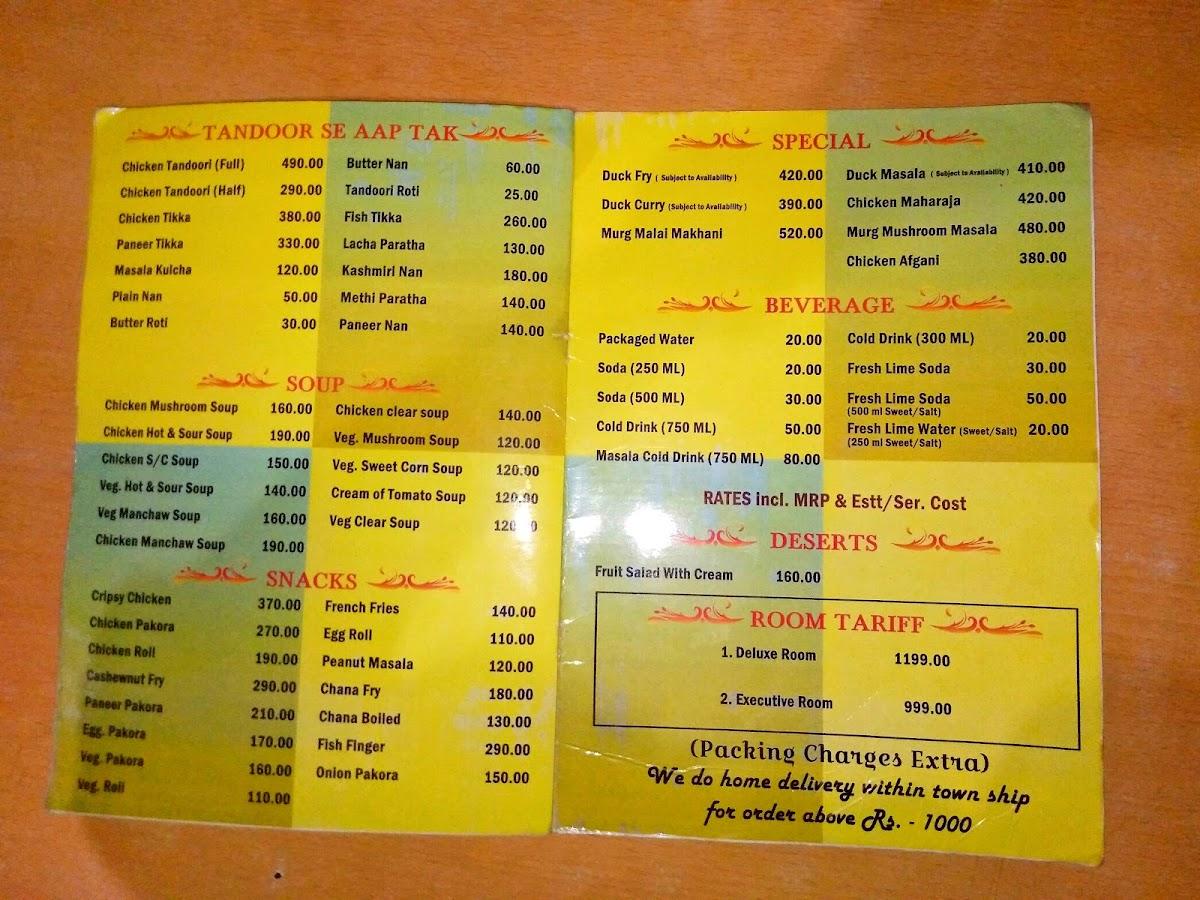 TANDOOR SE AAP TAK
Chicken Tandoori (Full) 490.00
Chicken Tandoori (Half) 290.00
Chicken Tikka 380.00
Paneer Tikka 330.00
Masala Kulcha 120.00
Plain Nan 50.00
Butter Roti 30.00
Butter Nan 60.00
Tandoori Roti 25.00
Fish Tikka 260.00
Lacha Paratha 130.00
Kashmiri Nan 180.00
Methi Paratha 140.00
Paneer Nan 140.00
SOUP
Chicken Mushroom Soup 160.00
Chicken Hot & Sour Soup 190.00
Chicken S/C Soup 150.00
Veg. Hot & Sour Soup 140.00
Veg Manchaw Soup 160.00
Chicken Manchaw Soup 190.00
Chicken clear soup 140.00
Veg. Mushroom Soup 120.00
Veg. Sweet Corn Soup 120.00
Cream of Tomato Soup 120.00
Veg Clear Soup 120.00
SNACKS
Cripsy Chicken 370.00
Chicken Pakora 270.00
Chicken Roll 190.00
Cashewnut Fry 290.00
Paneer Pakora 210.00
Egg. Pakora 170.00
Veg. Pakora 160.00
Veg. Roll 110.00
French Fries 140.00
Egg Roll 110.00
Peanut Masala 120.00
Chana Fry 180.00
Chana Boiled 130.00
Fish Finger 290.00
Onion Pakora 150.00
SPECIAL
Duck Fry ( Subject to Availability ) 420.00
Duck Curry (Subject to Availability ) 390.00
Murg Malai Makhani 520.00
Duck Masala ( Subject to Availability ) 410.00
Chicken Maharaja 420.00
Murg Mushroom Masala 480.00
Chicken Afgani 380.00
BEVERAGE
Packaged Water 20.00
Soda (250 ML) 20.00
Soda (500 ML) 30.00
Cold Drink (750 ML) 50.00
Masala Cold Drink (750 ML) 80.00
Cold Drink (300 ML) 20.00
Fresh Lime Soda 30.00
Fresh Lime Soda 50.00
(500 ml Sweet/Salt)
Fresh Lime Water (Sweet/Salt) 20.00
(250 ml Sweet/Salt)
RATES incl. MRP & Estt/Ser. Cost
DESERTS
Fruit Salad With Cream 160.00
ROOM TARIFF
1. Deluxe Room 1199.00
2. Executive Room 999.00
(Packing Charges Extra)
We do home delivery within town ship
for order above Rs. - 1000